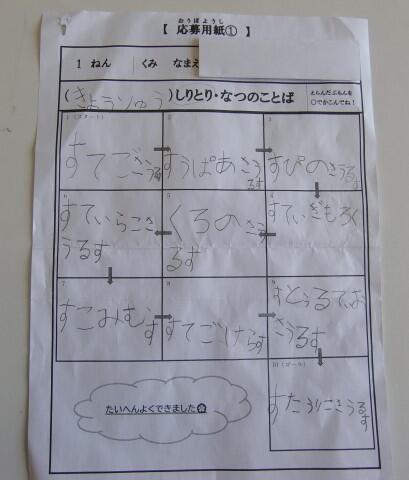 おうぼようし
【 応募用紙① 】
1 ねん くみ なまえ
(きょうりゅう)しりとり・なつのことば
えらんだぶもんを
○でかこんでね!
1 (スタート)
すてごさうるす
2
すうぱあさうるす
3
すぴのさうるす
4
すてぃぎもろく
5
くろのさうるす
6
すてぃらこさうるす
7
すこみむす
8
すてごけらす
9
さうるす
10 (ゴール)
すたうりこさうるす
たいへんよくできました